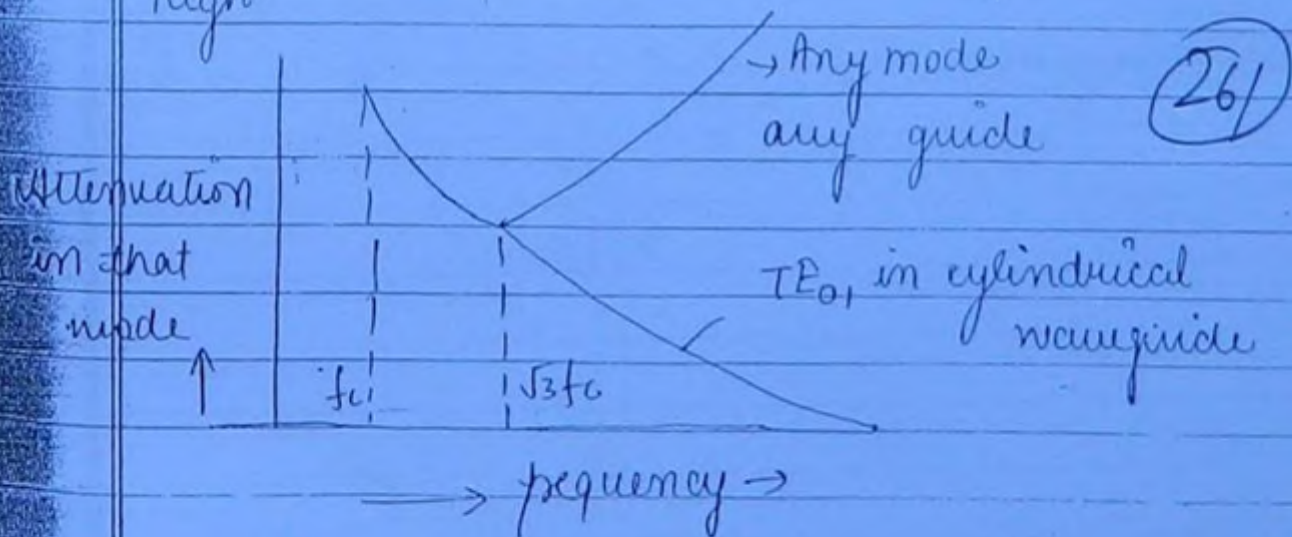 → Any mode
any guide
26/
Attenuation
in that
mode
TE01 in cylindrical
waveguide
fc
√3fc
frequency →